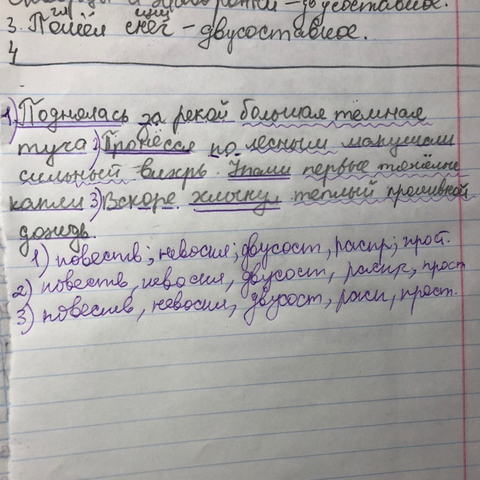 двусоставное.
3. Пошёл снег - двусоставное.
4
1) Поднялась за рекой большая тёмная
туча 2) Пронёсся по лесным макушкам
сильный вихрь. Упали первые
капли 3) Вскоре хлынул теплый проливной
дождь.
1) повеств; невоскл; двусост, распр;
2) повеств, невоскл, двусост, распр, прост
3) повеств, невоскл, двусост, расп, прост.